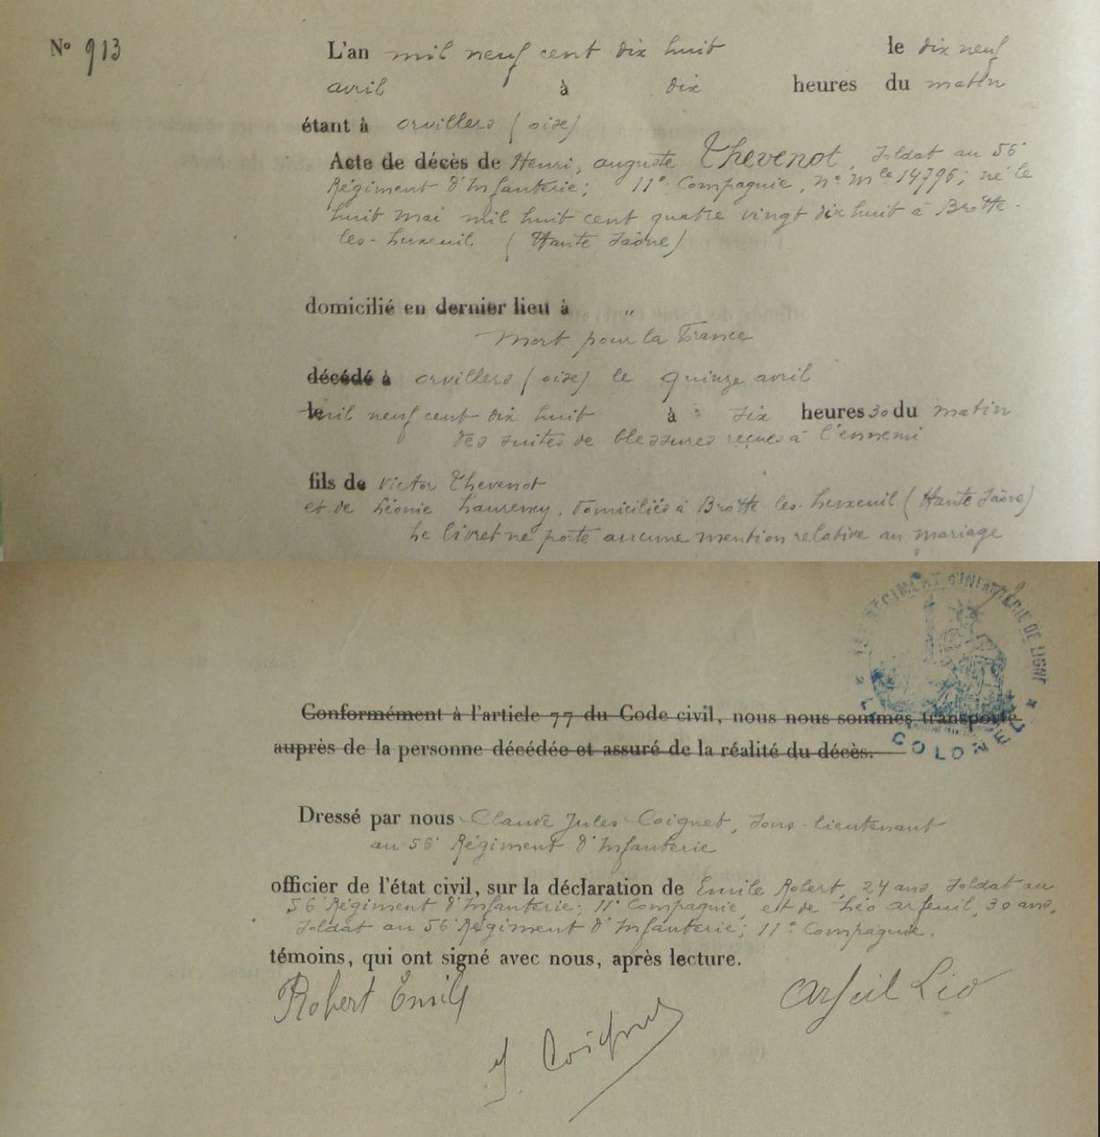 N° 913
L'an mil neuf cent dix huit le dix neuf
avril à dix heures du matin
étant à orvillers (oise)
Acte de décès de Henri, auguste Thevenot, Soldat au 56e
Régiment d'Infanterie; 11e Compagnie, n° mle 14796; né le
huit mai mil huit cent quatre vingt dix huit à Brotte-
les-Luxeuil (Haute Saône)
domicilié en dernier lieu à "
Mort pour la France
décédé à orvillers (oise) le quinze avril
le mil neuf cent dix huit à six heures 30 du matin
des suites de blessures reçues à l'ennemi
fils de Victor Thevenot
et de Léonie domiciliés à Brotte les-Luxeuil (Haute Saône)
Le livret ne porte aucune mention relative au mariage
RÉGIMENT D'INFANTERIE DE LIGNE
COLONEL
Conformément à l'article 77 du Code civil, nous nous sommes transporté
auprès de la personne décédée et assuré de la réalité du décès.
Dressé par nous Claude Jules Coignet, Sous-lieutenant
au 56e Régiment d'Infanterie
officier de l'état civil, sur la déclaration de Emile Robert, 24 ans, Soldat au
56e Régiment d'Infanterie; 11e Compagnie, et de Léo Arfeuil, 30 ans,
Soldat au 56e Régiment d'Infanterie; 11e Compagnie.
témoins, qui ont signé avec nous, après lecture.
Robert Emile Arfeuil Léo
J. Coignet